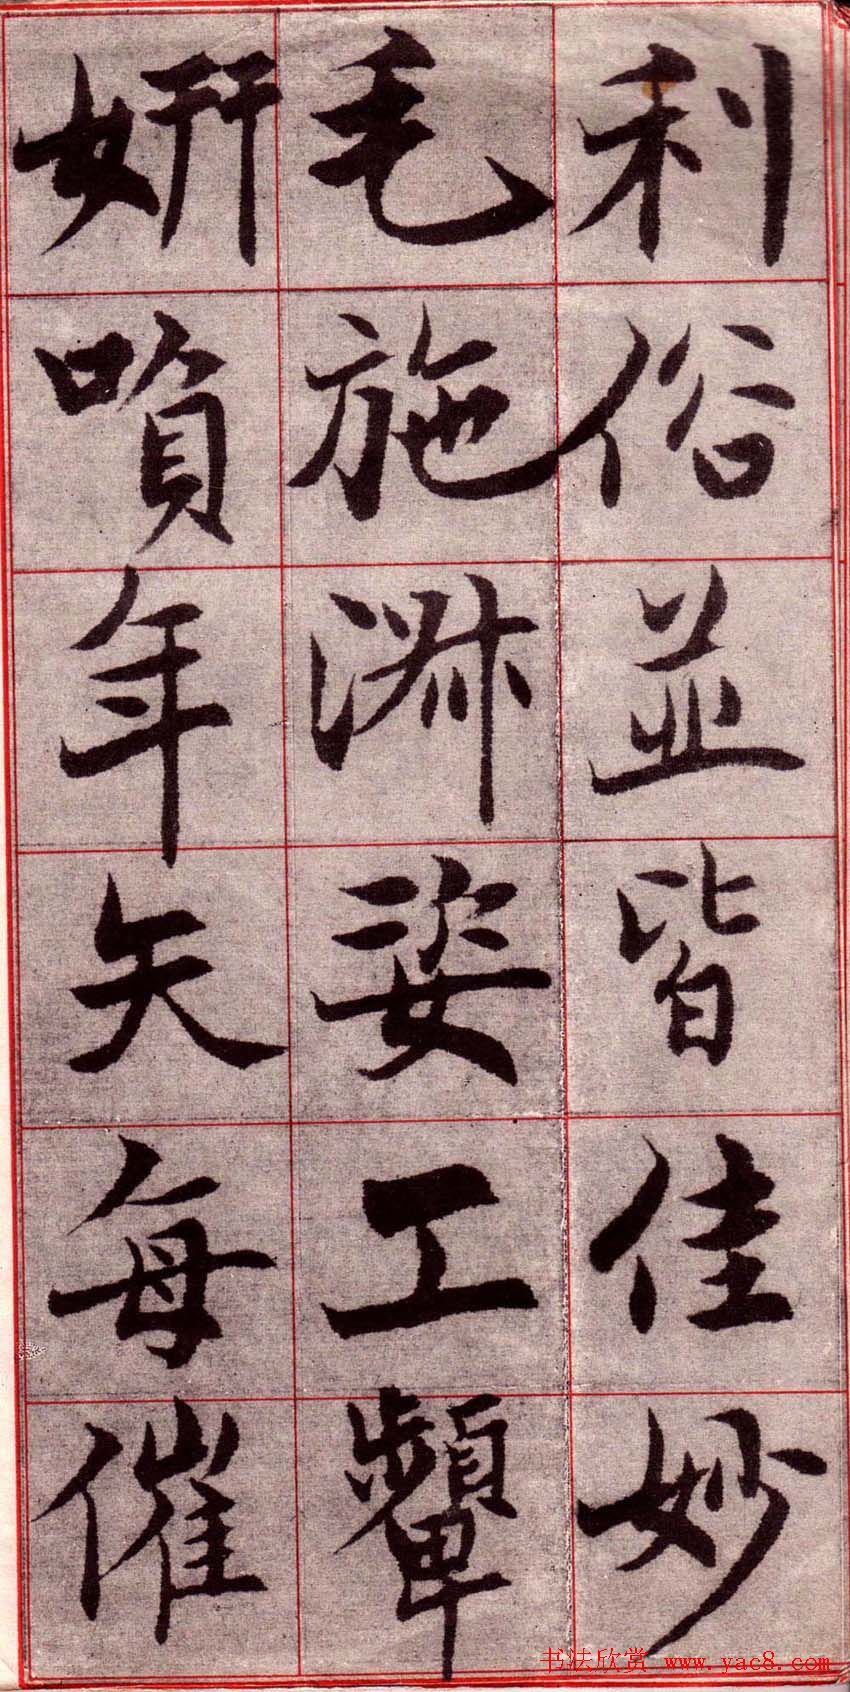 利俗並皆佳妙
毛施淑姿工顰
妍嚬年矢每催
书法欣赏 www.yac8.com